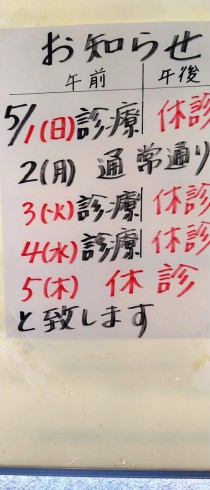 お知らせ
午前 午後
5/1(日) 診療 休診
2(月) 通常通り
3(火) 診療 休診
4(水) 診療 休診
5(木) 休診
と致します